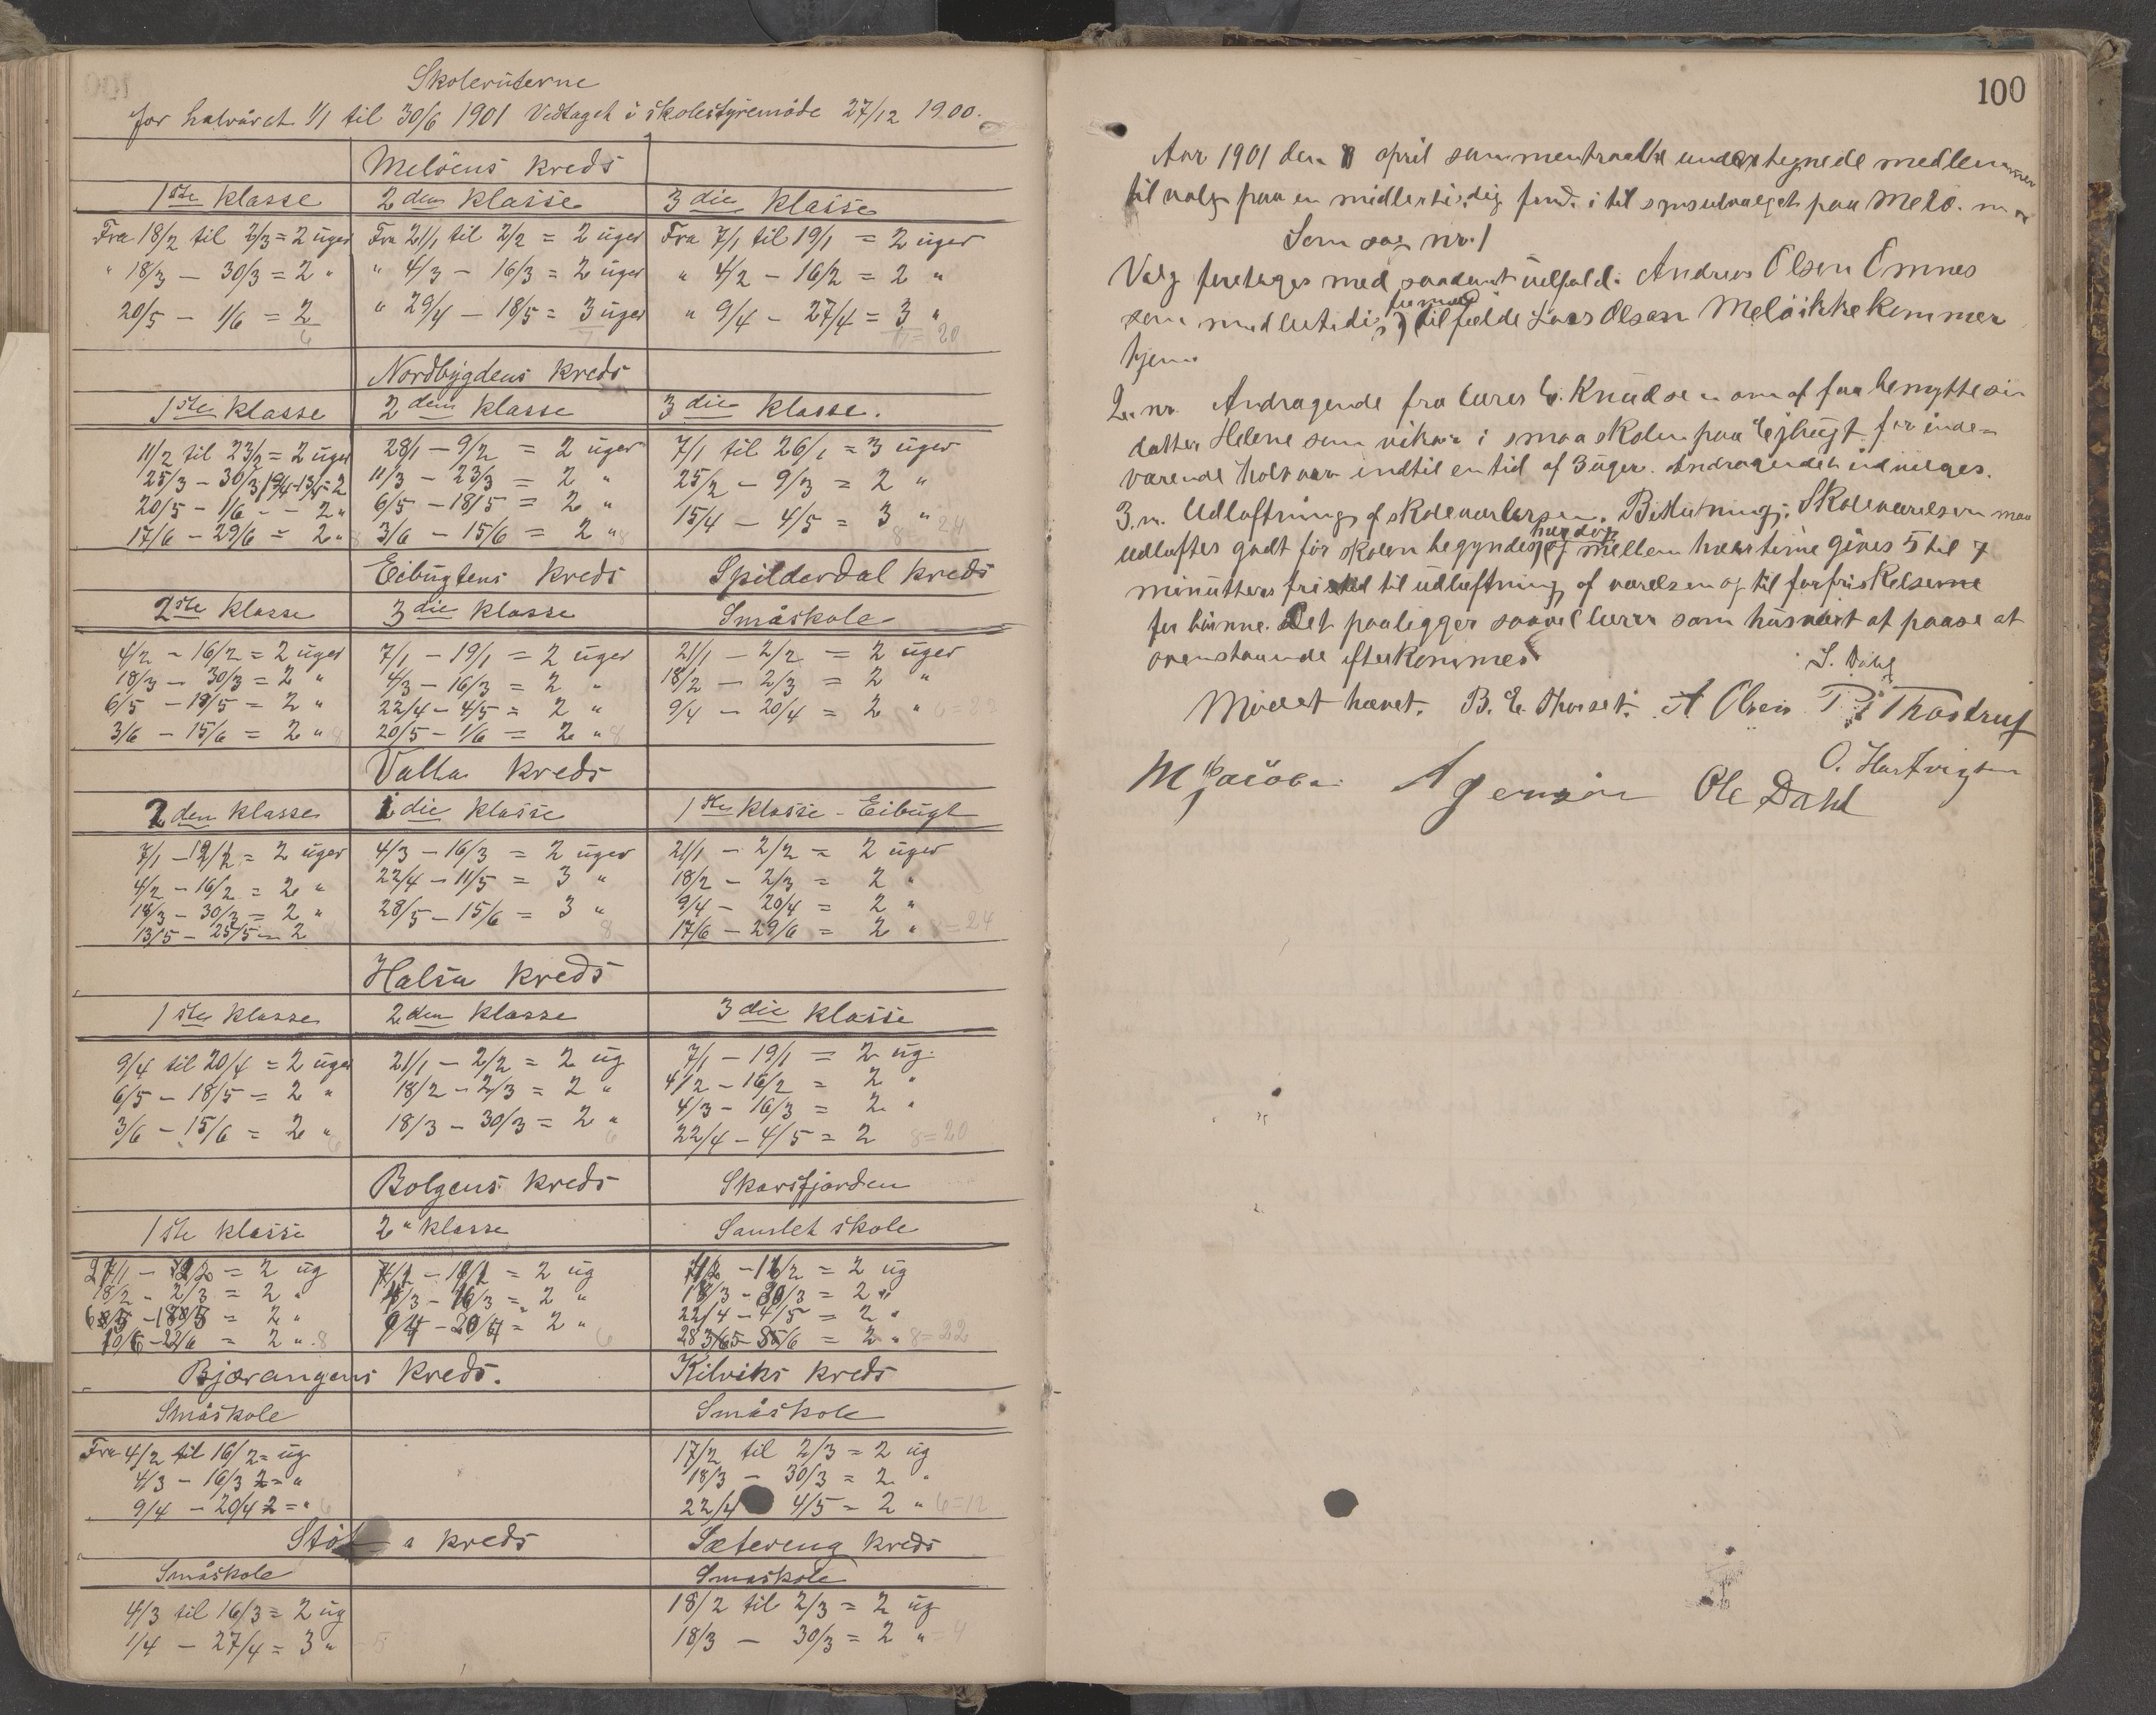 Skoleruterne
for halvåret 1/1 til 30/6 1901 Vedtaget i skolestyremöde 27/12 1900.
Melöens kreds
1ste klasse 2den klasse 3die klasse
Fra 18/2 til 2/3 = 2 uger Fra 21/1 til 2/2 = 2 uger Fra 7/1 til 19/1 = 2 uger
" 18/3 — 30/3 = 2 " " 4/3 — 16/3 = 2 uger " 4/2 — 16/2 = 2 "
20/5 — 1/6 = 2 " 29/4 — 18/5 = 3 uger " 9/4 — 27/4 = 3 "
6 7 7 = 20
Nordbygdens kreds
1ste klasse 2den klasse 3die klasse.
11/2 til 23/2 = 2 uger 28/1 — 9/2 = 2 uger 7/1 til 26/1 = 3 uger
25/3 — 30/3 11/3 — 23/3 = 2 " 25/2 — 9/3 = 2 "
20/5 — 1/6 — 2 " 6/5 — 18/5 = 2 " 15/4 — 4/5 = 3 "
17/6 — 29/6 = 2 " 8 3/6 — 15/6 = 2 " 8 8 = 24
Eibugtens kreds Spilderdal kreds
2ste klasse 3die klasse Småskole
4/2 — 16/2 = 2 uger 7/1 — 19/1 = 2 uger 21/1 — 2/2 = 2 uger
18/3 — 30/3 = 2 " 4/3 — 16/3 = 2 " 18/2 — 2/3 = 2 "
6/5 — 18/5 = 2 " 22/4 — 4/5 = 2 " 9/4 — 20/4 = 2 " 6 = 22
3/6 — 15/6 = 2 " 8 20/5 — 1/6 = 2 " 8
Valla kreds
2den klasse 1die klasse 1ste klasse - Eibugt
7/1 — = 2 uger 4/3 — 16/3 = 2 uger 21/1 — 2/2 = 2 uger
4/2 — 16/2 = 2 " 22/4 — 11/5 = 3 " 18/2 — 2/3 = 2 "
18/3 — 30/3 = 2 " 28/5 — 15/6 = 3 " 9/4 — 20/4 = 2 "
13/5 — 25/5 — 2 8 17/6 — 29/6 = 2 " 8 = 24
Halsa kreds
1ste klasse 2den klasse 3die klasse
9/4 til 20/4 = 2 uger 21/1 — 2/2 = 2 ug 7/1 — 19/1 = 2 ug.
6/5 — 18/5 = 2 " 18/2 — 2/3 = 2 " 4/2 — 16/2 = 2 "
3/6 — 15/6 = 2 " 6 18/3 — 30/3 = 2 " 6 4/3 — 16/3 = 2 "
22/4 — 4/5 = 2 8 = 20
Bolgens kreds Skarsfjorden
1ste klasse 2" klasse Samlet skole
= 2 ug = 2 ug = 2 ug
18/2 - 2/3 = 2 " 4/3 — 16/3 = 2 " 18/3 — 30/3 = 2 "
= 2 " = 2 " 6 22/4 — 4/5 = 2 "
10/6 — 22/6 = 2 " 8 = 2 " 8 = 22
Bjærangens kreds. Kilviks kreds
Småskole Småskole
Fra 4/2 til 16/2 = ug 17/2 til 2/3 = 2 ug
4/3 — 16/3 2 = " 18/3 — 30/3 = 2 "
9/4 — 20/4 2 = " 6 22/4 4/5 = 2 " 6 = 12
Stöt a kreds Sætereng kreds
Småskole Småskole
4/3 til 16/3 = 2 ug 18/2 til 2/3 = 2 ug
1/4 — 27/4 = 3 " = 5 18/3 — 30/3 = 2 " = 4
100
Aar 1901 den 8 april sammentraatte undertegnede medlemmer
til valg paa en midlertidig i tilsynsudvalget paa Melö.
Som sag nr. 1
Valg foretages med saadant udfald: Andreas Olsen Ömnes
som midlertidig formand i tilfælde Lars Olsen Melö ikke kommer
hjem.
2. nr. Andragende fra lærer E. Knudsen om at faa benytte sin
datter Helene som vikar i smaaskolen paa Ejbugt for inde-
værende halvaar indtil en tid af 3 uger. Andragendet indvilges.
3. n. Udluftning af skoleværelsen. Beslutning: Skoleværelsen maa
udluftes godt för skolen begyndes hver dag og mellem hver time gives 5 til 7
minutters fritid til udluftning af værelsen og til forfriskelserne
for börnne. Det paaligger saavel lærer som husvært at paase at
ovenstaaende efterkommes
S. Dahl
Mödet hævet. B. E. Thorset. A Olsen P. Thostrup
O. Hartvigsen
M Jacobs. A Jensen Ole Dahl